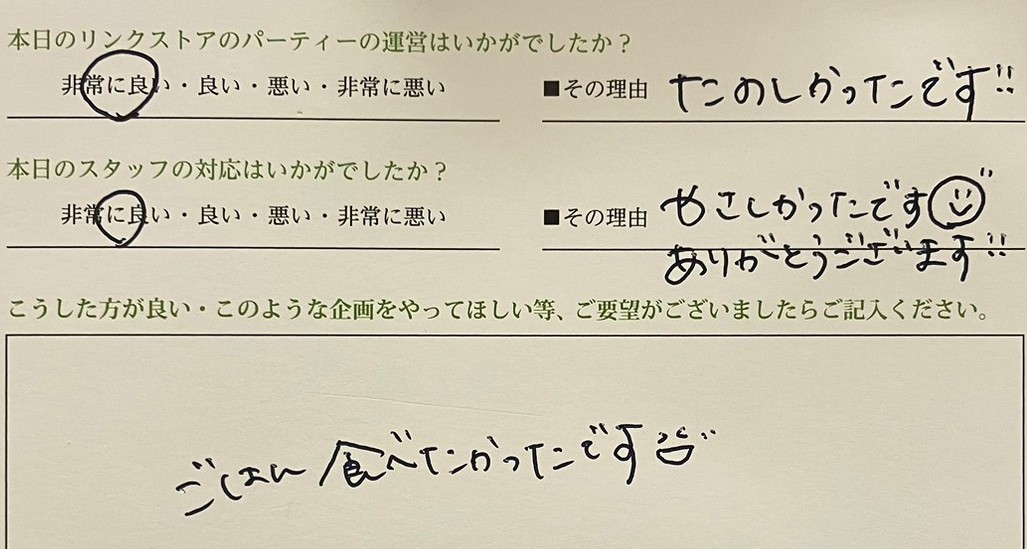 本日のリンクストアのパーティーの運営はいかがでしたか？
非常に良い・良い・悪い・非常に悪い ■その理由 たのしかったです!!
本日のスタッフの対応はいかがでしたか？
非常に良い・良い・悪い・非常に悪い ■その理由 やさしかったです
ありがとうございます!!
こうした方が良い・このような企画をやってほしい等、ご要望がございましたらご記入ください。
ごはん食べたかったです